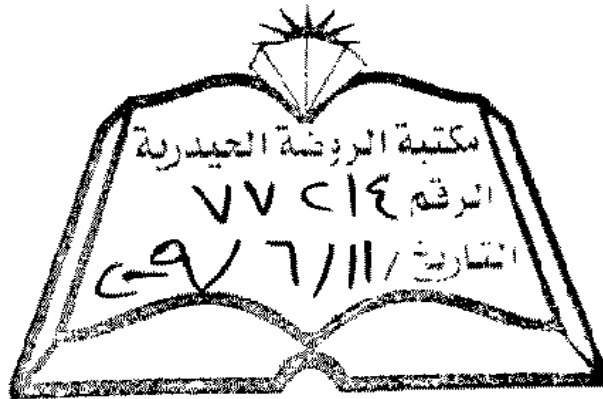 مكتبة الروضة الحيدرية
الرقم ٧٧٢١٤
التاريخ / ١١/ ٦/ ٢٠٠٩